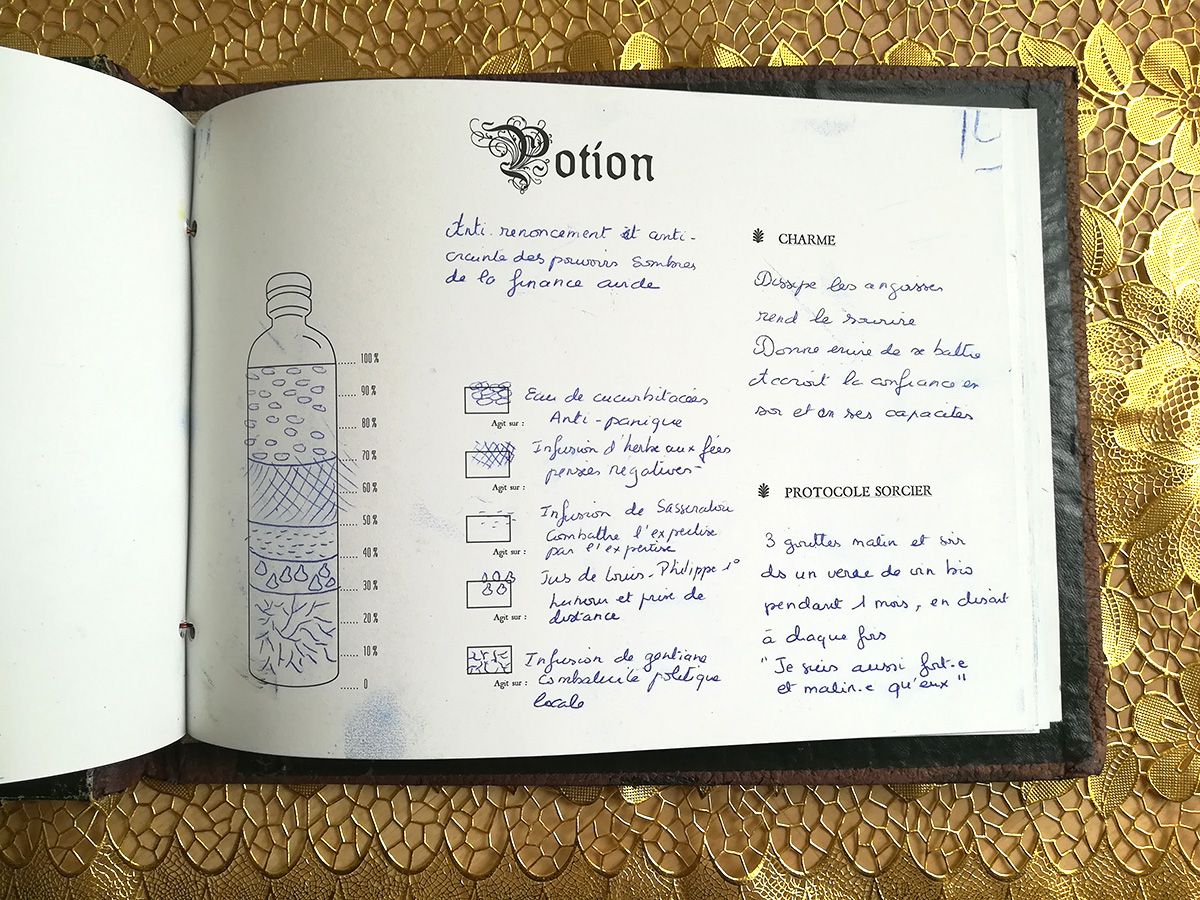 Potion
Anti-renoncement et anti-
crainte des pouvoirs sombres
de la finance avide
100%
90%
80%
70%
60%
50%
40%
30%
20%
10%
0
Eau de cucurbitacées
Agit sur : Anti-panique
Infusion d'herbe aux fées
pensées négatives-
Agit sur :
Infusion de
Combattre l'expertise
par l'expertise
Agit sur :
Jus de Louis-Philippe 1°
humour et prise de
distance
Agit sur :
Infusion de gentiane
Agit sur : combativité politique
locale
CHARME
Dissipe les angoisses
rend le sourire
Donne envie de se battre
Accroît la confiance en
soi et en ses capacités
PROTOCOLE SORCIER
3 gouttes matin et soir
ds un verre de vin bio
pendant 1 mois, en disant
à chaque fois
"Je suis aussi fort-e
et malin-e qu'eux"